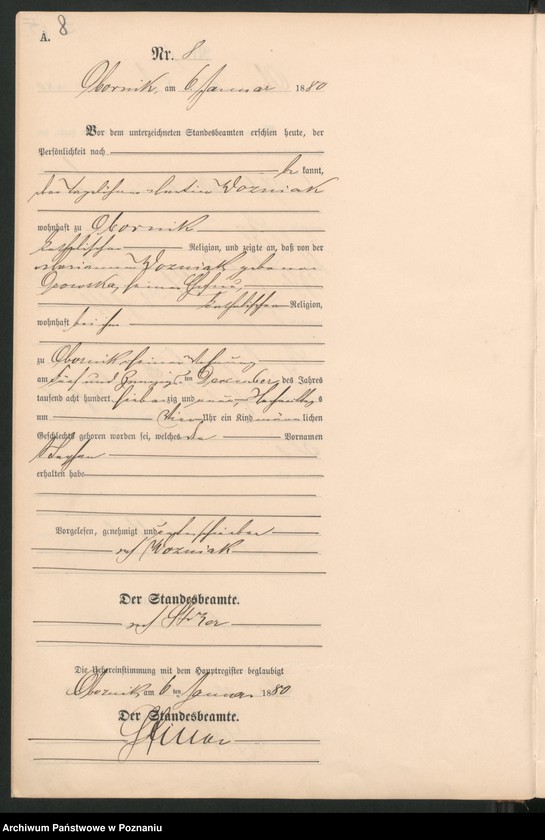 A. 8
Nr. 8
Obornik, am 6 Januar 1880
Vor dem unterzeichneten Standesbeamten erschien heute, der
Persönlichkeit nach
bekannt,
der Wozniak
wohnhaft zu Obornik
katholischer Religion, und zeigte an, daß von der
Marianna Wozniak, geborenen
seiner Ehefrau,
katholischer Religion,
wohnhaft bei ihm
zu Obornik in seiner Wohnung
am fünf und zwanzigsten Dezember des Jahres
tausend acht hundert siebenzig und neun, Nachmittags
um Uhr ein Kind männlichen
Geschlechts geboren worden sei, welches den Vornamen
Stephan
erhalten habe
Vorgelesen, genehmigt und unterschrieben
Wozniak
Der Standesbeamte.
Die Uebereinstimmung mit dem Hauptregister beglaubigt
Obornik am 6ten Januar 1880
Der Standesbeamte.
Archiwum Państwowe w Poznaniu